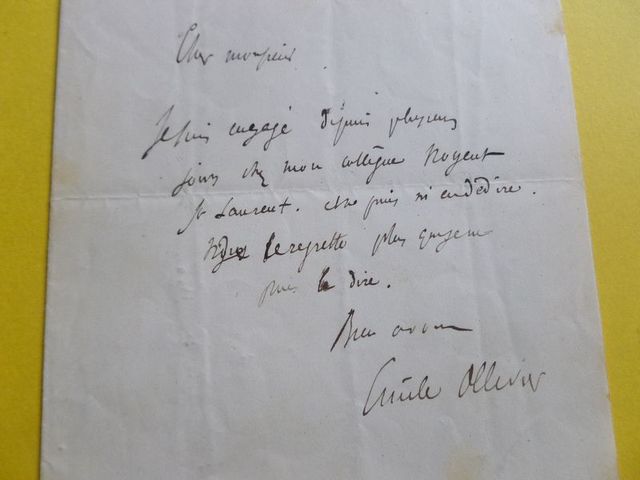 Cher monsieur
Je suis engagé depuis plusieurs
jours chez mon collègue Nogent
St Laurent. et ne puis m'en dédire.
Je le regrette plus que je ne
puis le dire.
Bien à vous
Emile Ollivier